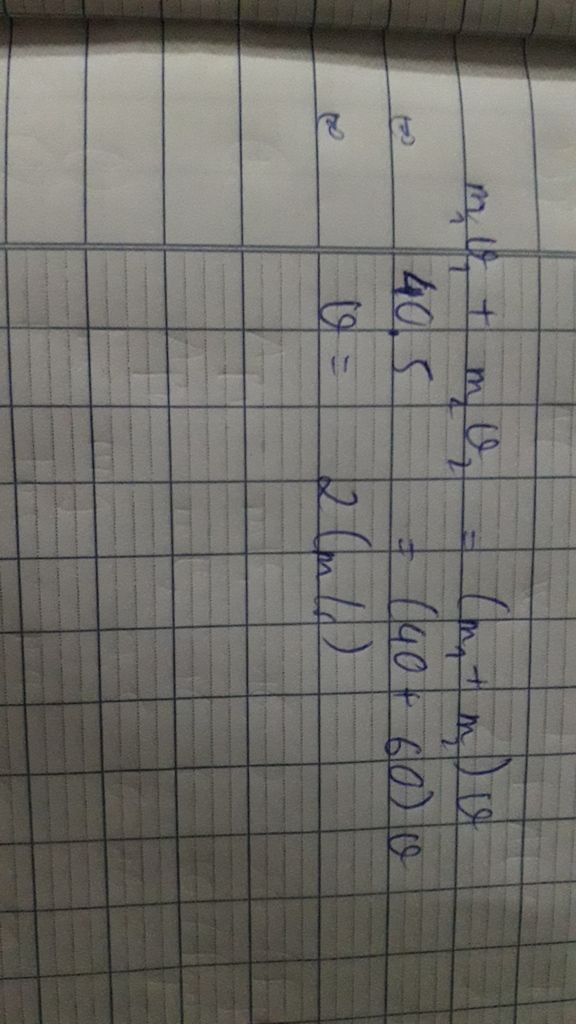 m₁v₁ + m₂v₂ = (m₁ + m₂)v
⇔ 40.5 = (40 + 60)v
⇔ v = 2 (m/s)